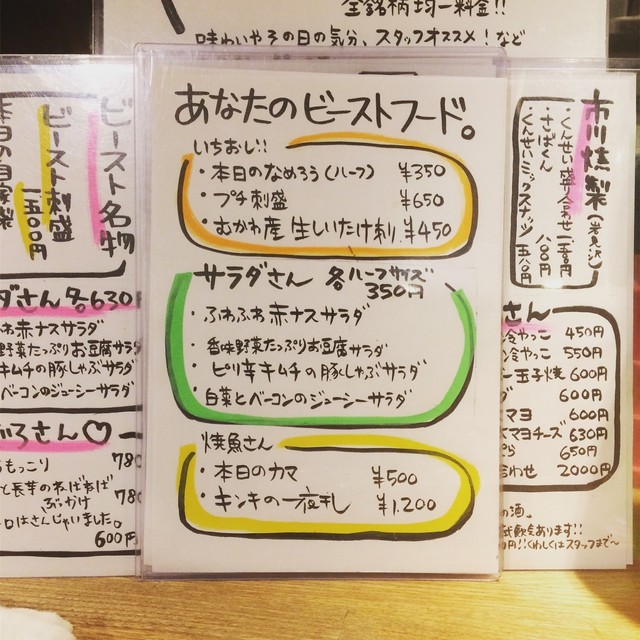 全銘柄均一料金!!
味わいやその日の気分、スタッフオススメ!など
あなたのビーストフード。
いちおし!!
・本日のなめろう(ハーフ) ¥350
・プチ刺盛 ¥650
・むかわ産 生しいたけ刺 ¥450
サラダさん 各ハーフサイズ 350円
・ふわふわ赤ナスサラダ
・香味野菜たっぷりお豆腐サラダ
・ピリ辛キムチの豚しゃぶサラダ
・白菜とベーコンのジューシーサラダ
焼魚さん
・本日のカマ ¥500
・キンキの一夜干し ¥1,200
ビースト名物
ビースト刺盛
一五〇〇円
本日の自家製
ダさん 各630円
わ赤ナスサラダ
野菜たっぷりお豆腐サラダ
キムチの豚しゃぶサラダ
ベーコンのジューシーサラダ
ろさん♡
もっこり 780
と長芋のねばねば
ぶっかけ 780
ロはさんじゃいました。
600円
市川燻製(岩見沢)
・くんせい盛り合わせ
・さばくん 八〇〇円
くんせいミックスナッツ 五八〇円
さん
冷やっこ 450円
冷やっこ 550円
ー玉子焼 600円
ダ 600円
マヨ 600円
マヨチーズ 630円
ら 650円
合わせ 2000円
の酒。
飲あります!!
円!!くわしくはスタッフまで〜